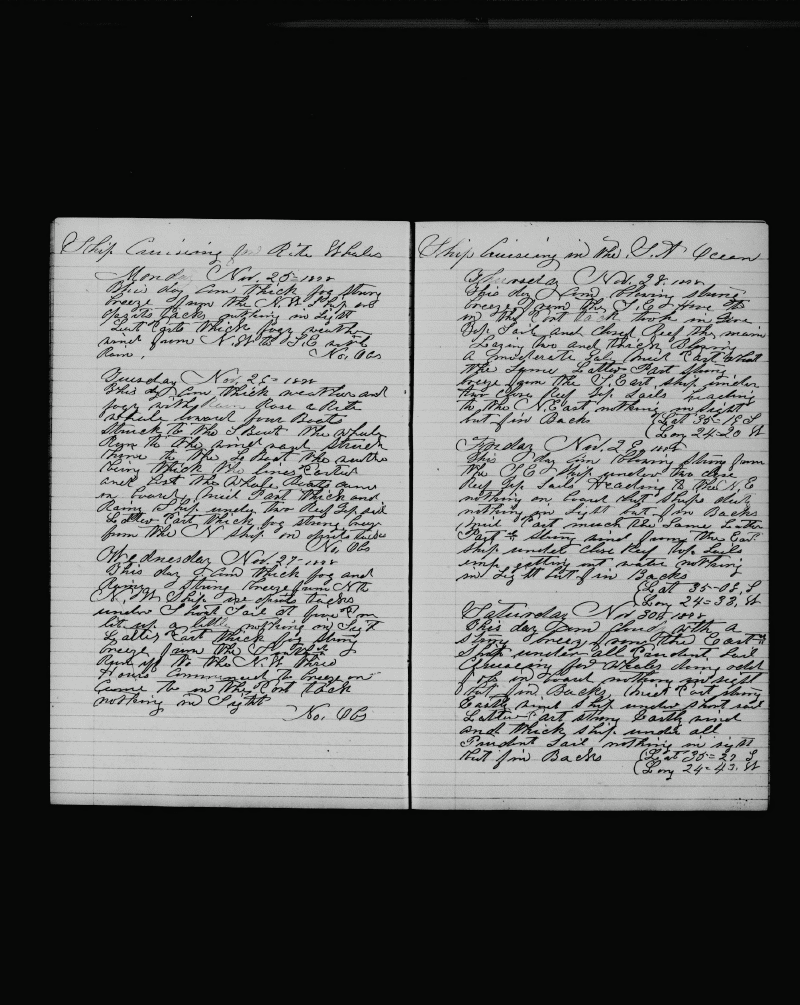 Ship Cruising for Rite Whales
Monday Nov. 25=
This day Com thick fog strong
breeze from the N.W. Ship on
opsite tacks nothing in Sight
Latt Part thick fogy weather
wind from N.W to S.E. with
Rain. No. Obs
Tuesday Nov. 26=
This day Com thick weather and
fogy with rain Rose a Rite
whale lowerd four Boats
Struck to the Boat the whale
Run to the wind
him to the Boat the weather
being thick the lines Parted
and Lost the Whale Boats came
on board Mid Part thick and
Rainy Ship under two Reef Top sail
Latter Part thick fog strong breeze
from the N ship on opsite tacks
No, Obs
Wednesday Nov. 27-
This day Com thick fog and
Rainy Strong breeze from Nth
N.W. Ship on opsite tacks
under Short Sail at four P.m
lit up a little nothing in Sight
Latter Part thick fog strong
breeze from the
Run off to the N.W three
Hours Commenced to breeze on
Came to on the Port tack
nothing in Sight
No, Obs
Ship Cruising in the S.A. Ocean
Thursday Nov, 28.
This day Com blowing strong
breeze from the S.E. Hove to
on the Port tack took in fore
Top Sail and closed Reef the main
Leging two and thick Blowing
a moderate Gale Mid Part about
the Same Latter Part strong
breeze from the S. East ship under
two close Reef Top Sails heading
to the N. East nothing in sight
but fin Backs (Lat 35=19 S
(Long 24=20 W
Friday Nov. 29,
This day Com blowing strong from
the S.E. Ship under two close
Reef Top Sails Heading to the N.E
nothing on board that Ships deck
nothing in Sight but fin Backs
Mid Part much the Same Latter
Part strong wind from the East
ship under close Reef Top Sails
emp getting out water nothing
in Sight but fin Backs
(Lat 35-03, S
(Long 24=33, W
Saturday Nov 30th
This day Com cloudy with a
strong breeze from the East
Ship under all Prudent Sail
Cruising for Whales doing odd
jobs on board nothing in sight
but fin Backs Mid Part strong
Eastly wind ship under short sail
Latter Part strong Eastly wind
and thick ship under all
Prudent Sail nothing in sight
but fin Backs (Lat 35=27 S
(Long 24=43. W